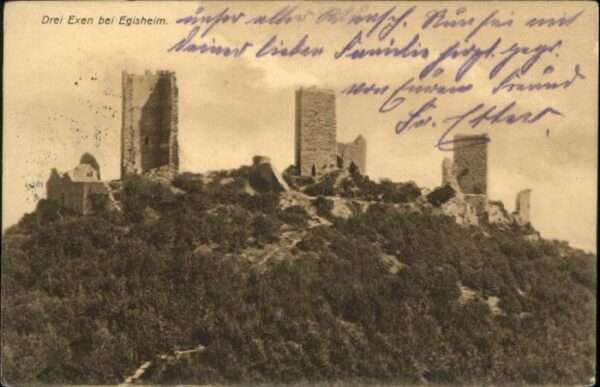 Drei Exen bei Egisheim.
unser aller Wunsch. Nun sei mit
deiner lieben Familie herzl. gegr.
von Eurem Freund
Fr.